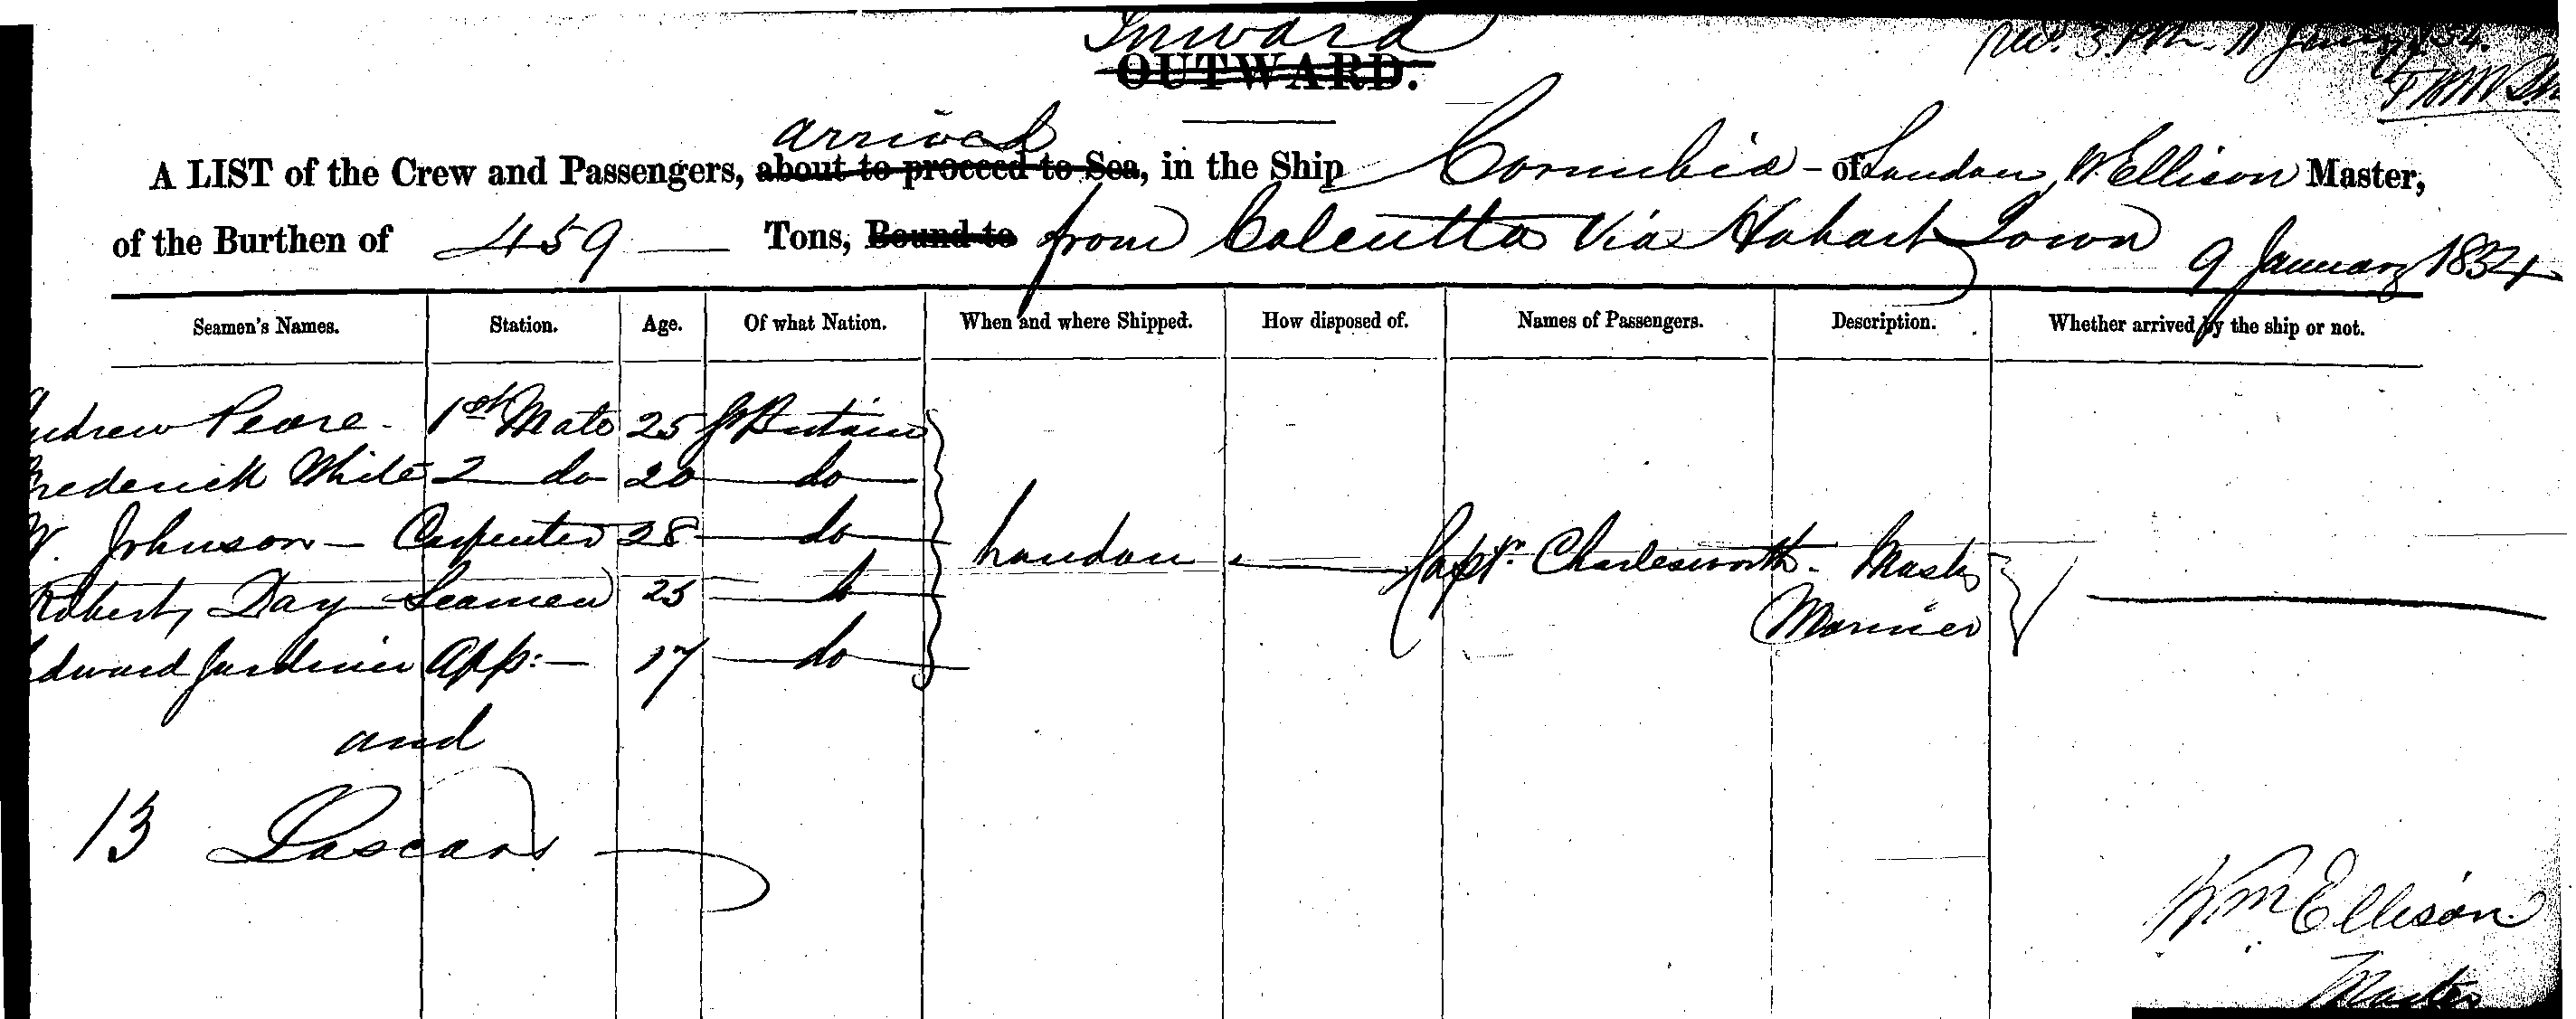 Inward
OUTWARD.
arrived
A LIST of the Crew and Passengers, about to proceed to Sea, in the Ship Cornubia - of London, W. Ellison Master,
of the Burthen of 459 Tons, Bound to from Calcutta Via Hobart Town 9 January 1854
Seamen's Names. Station. Age. Of what Nation. When and where Shipped. How disposed of. Names of Passengers. Description. Whether arrived by the ship or not.
Andrew Peare - 1st Mate 25 Gt Britain
Frederick White 2 do 20 do
W. Johnson - Carpenter 28 do
London Capt. Charlesworth - Master
Robert Day Seaman 25 do
Mariner
Edward Gardiner App: - 17 do
and
13 Lascars
Wm Ellison
Master